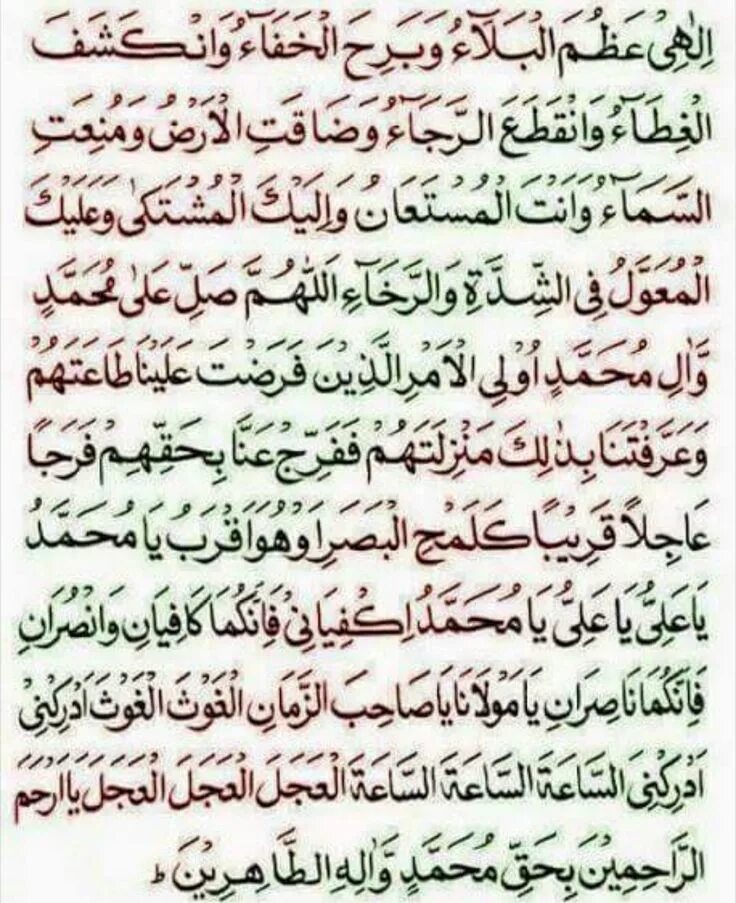 اِلٰهِيْ عَظُمَ الْبَلَآءُ وَبَرِحَ الْخَفَآءُ وَانْكَشَفَ
الْغِطَآءُ وَانْقَطَعَ الرَّجَآءُ وَضَاقَتِ الْاَرْضُ وَمُنِعَتِ
السَّمَآءُ وَاَنْتَ الْمُسْتَعَانُ وَاِلَيْكَ الْمُشْتَكٰى وَعَلَيْكَ
الْمُعَوَّلُ فِي الشِّدَّةِ وَالرَّخَآءِ اَللّٰهُمَّ صَلِّ عَلٰى مُحَمَّدٍ
وَّاٰلِ مُحَمَّدٍ اُولِي الْاَمْرِ الَّذِيْنَ فَرَضْتَ عَلَيْنَا طَاعَتَهُمْ
وَعَرَّفْتَنَا بِذٰلِكَ مَنْزِلَتَهُمْ فَفَرِّجْ عَنَّا بِحَقِّهِمْ فَرَجًا
عَاجِلًا قَرِيْبًا كَلَمْحِ الْبَصَرِ اَوْ هُوَ اَقْرَبُ يَا مُحَمَّدُ
يَا عَلِيُّ يَا عَلِيُّ يَا مُحَمَّدُ اِكْفِيَانِيْ فَاِنَّكُمَا كَافِيَانِ وَانْصُرَانِ
فَاِنَّكُمَا نَاصِرَانِ يَا مَوْلَانَا يَا صَاحِبَ الزَّمَانِ الْغَوْثَ الْغَوْثَ اَدْرِكْنِيْ
اَدْرِكْنِي السَّاعَةَ السَّاعَةَ السَّاعَةَ الْعَجَلَ الْعَجَلَ الْعَجَلَ يَا اَرْحَمَ
الرَّاحِمِيْنَ بِحَقِّ مُحَمَّدٍ وَّاٰلِهِ الطَّاهِرِيْنَ ط